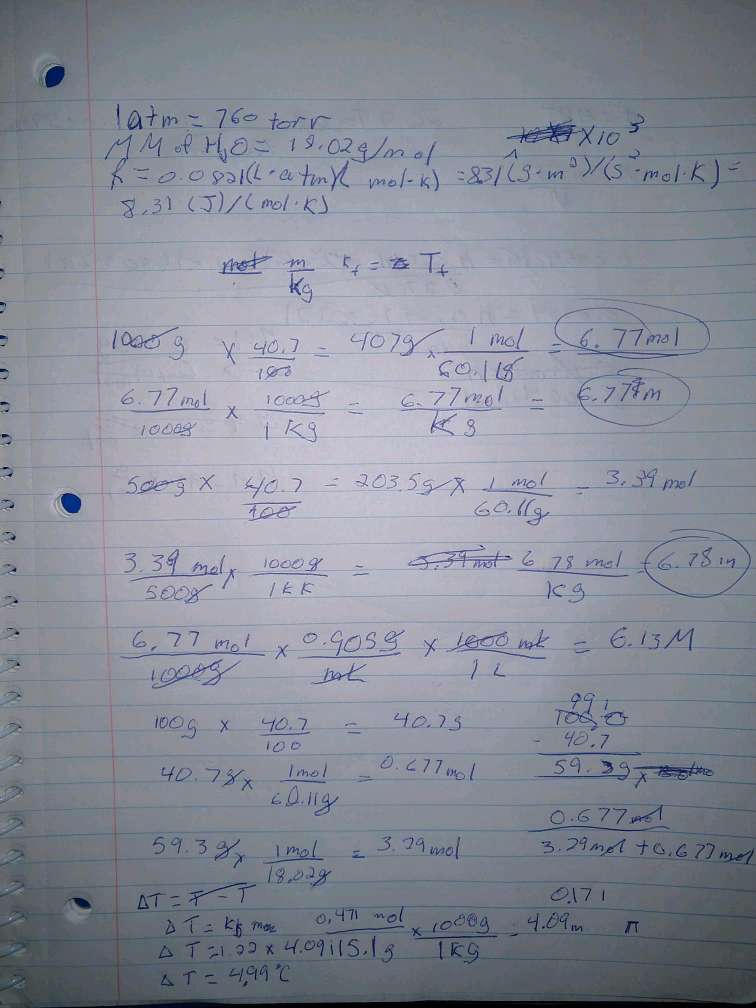 1atm = 760 torr
MM of H₂O = 18.02g/mol
×10³
R = 0.0821(L·atm)/( mol·K) = 8.31 (g·m²)/(s²·mol·K) =
8.31 (J)/(mol·K)
m/Kg Kf = Tf
1000g × 40.7/100 = 407g × 1 mol/60.11g = 6.77 mol
6.77 mol/1000g × 1000g/1 Kg = 6.77 mol/Kg = 6.77 m
500g × 40.7/100 = 203.5g × 1 mol/60.11g = 3.39 mol
3.39 mol/500g × 1000g/1KK = 3.39 mol 6.78 mol/Kg = 6.78 m
6.77 mol/1000g × 0.905g/mL × 1000 mL/1 L = 6.13M
100g × 40.7/100 = 40.7g
100.0
- 40.7
59.3g ×
40.7g × 1mol/60.11g = 0.677mol
59.3g × 1mol/18.02g = 3.29mol
0.677mol/3.29mol + 0.677mol
0.171
ΔT = T - T
ΔT = Kf 0.471 mol × 1000g/1KG = 4.09m π
ΔT = 1.22 × 4.09 115.1g
ΔT = 4.99°C